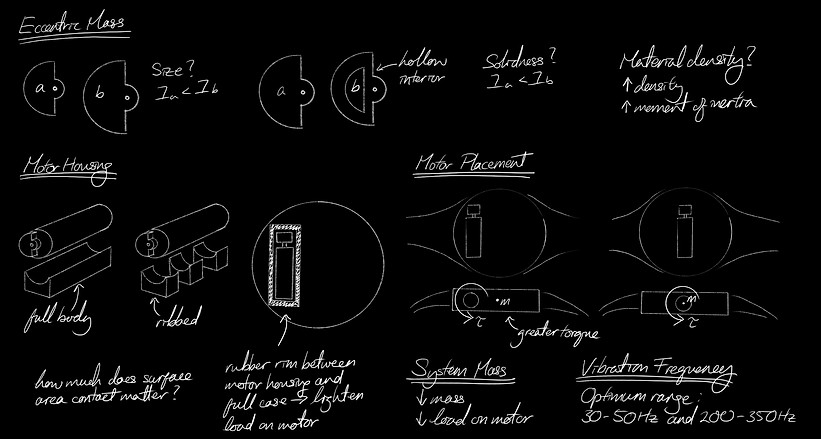 Eccentric Mass
a
b
Size?
Ia < Ib
a
b
hollow
interior
Solidness?
Ia < Ib
Material density?
↑ density
↑ moment of inertia
Motor Housing
full body
ribbed
how much does surface
area contact matter?
rubber rim between
motor housing and
full case → lighten
load on motor
Motor Placement
m
τ
greater torque
m
τ
System Mass
↓ mass
↓ load on motor
Vibration Frequency
Optimum range:
30-50Hz and 200-350Hz